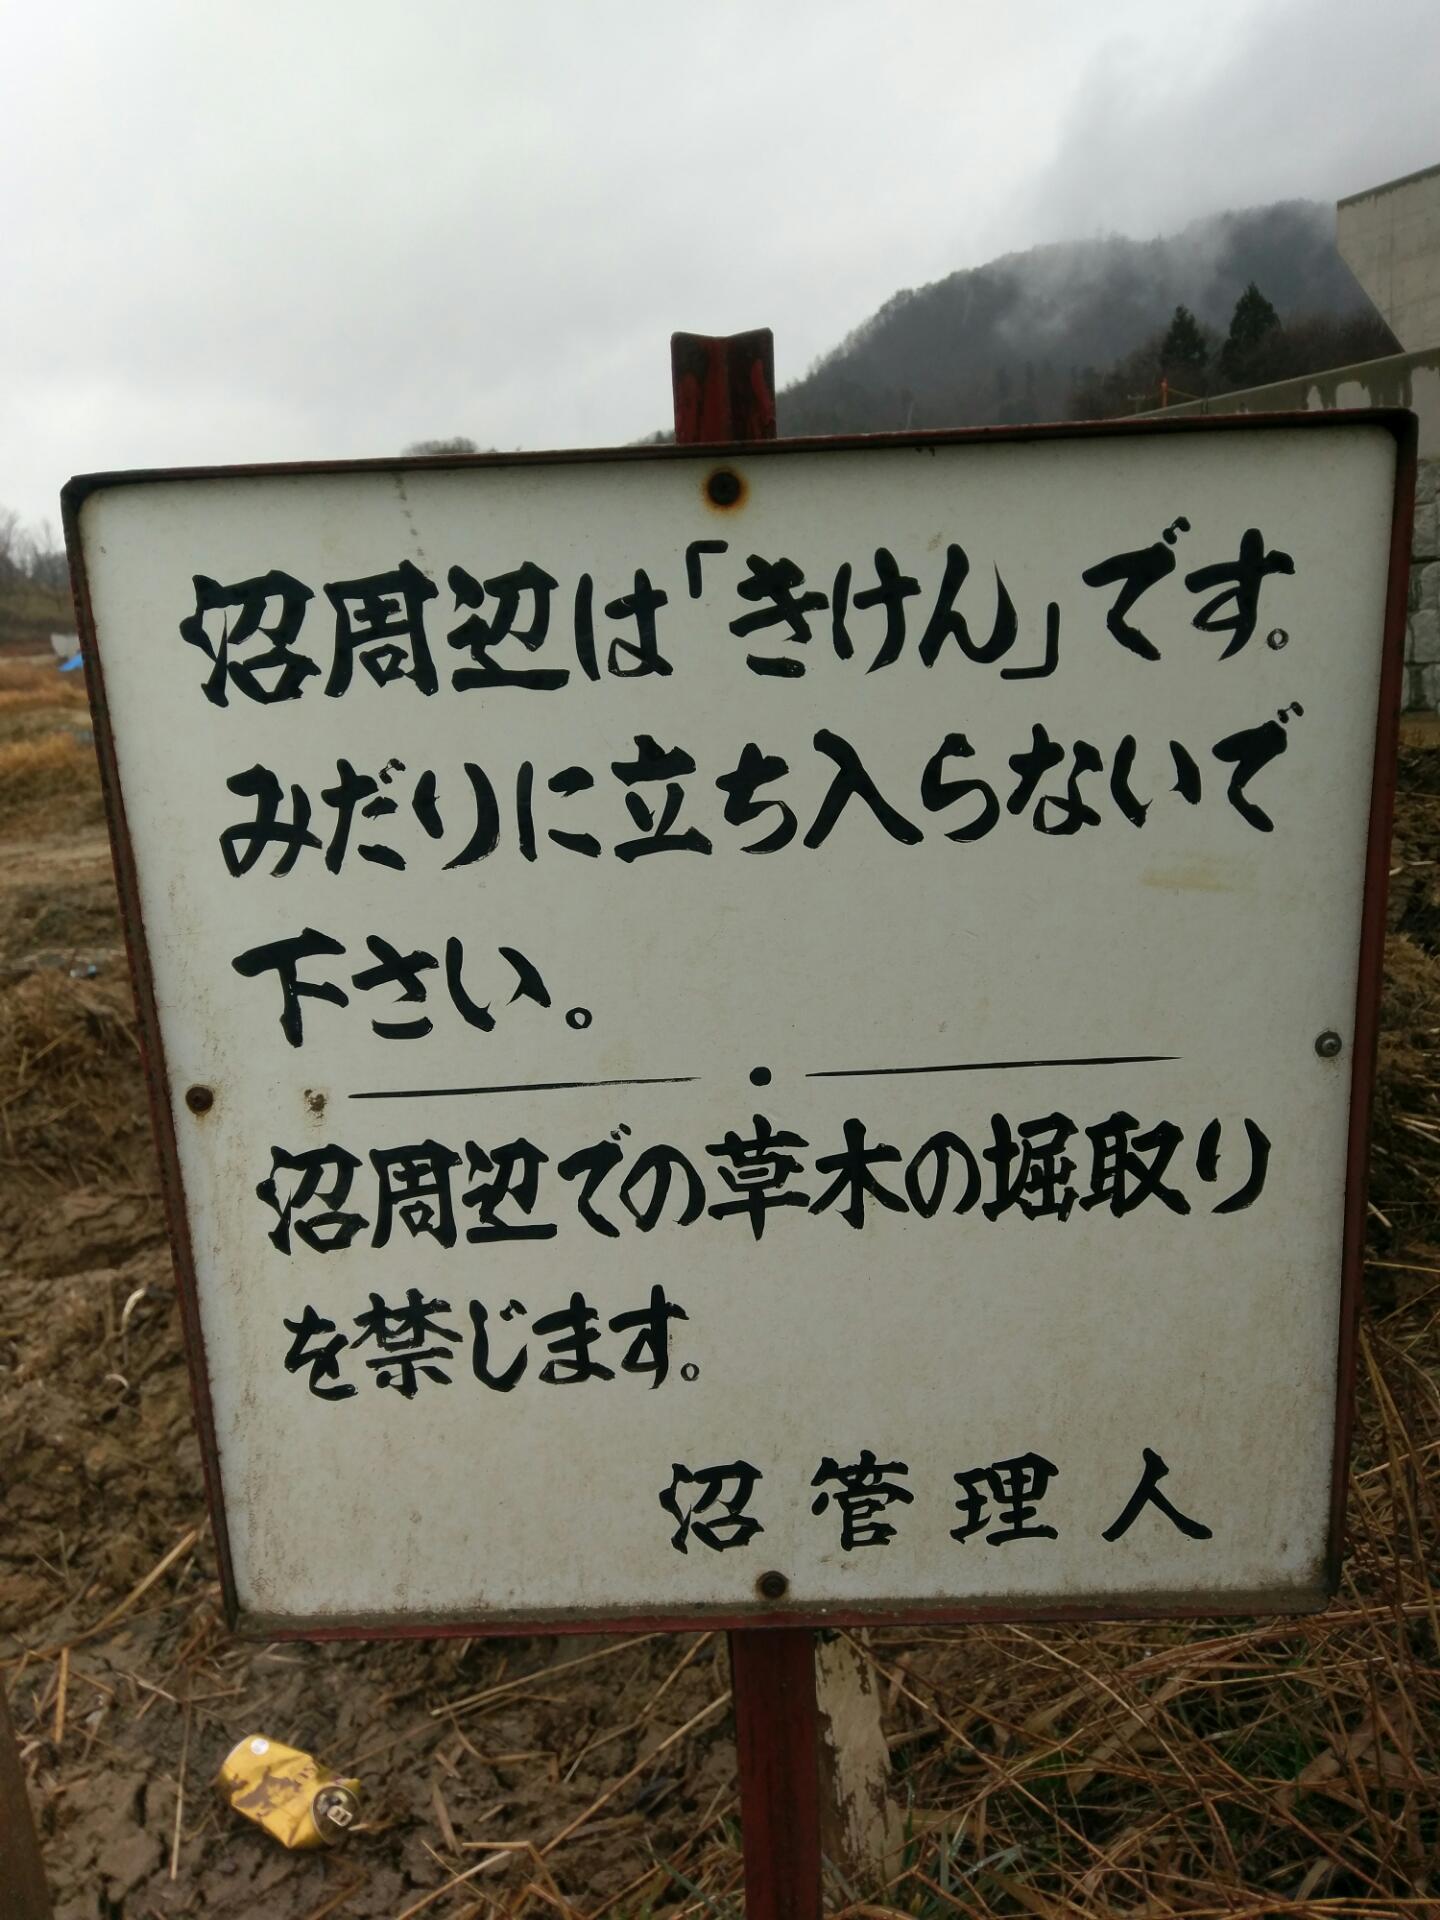 沼周辺は「きけん」です。
みだりに立ち入らないで
下さい。
沼周辺での草木の堀取り
を禁じます。
沼管理人